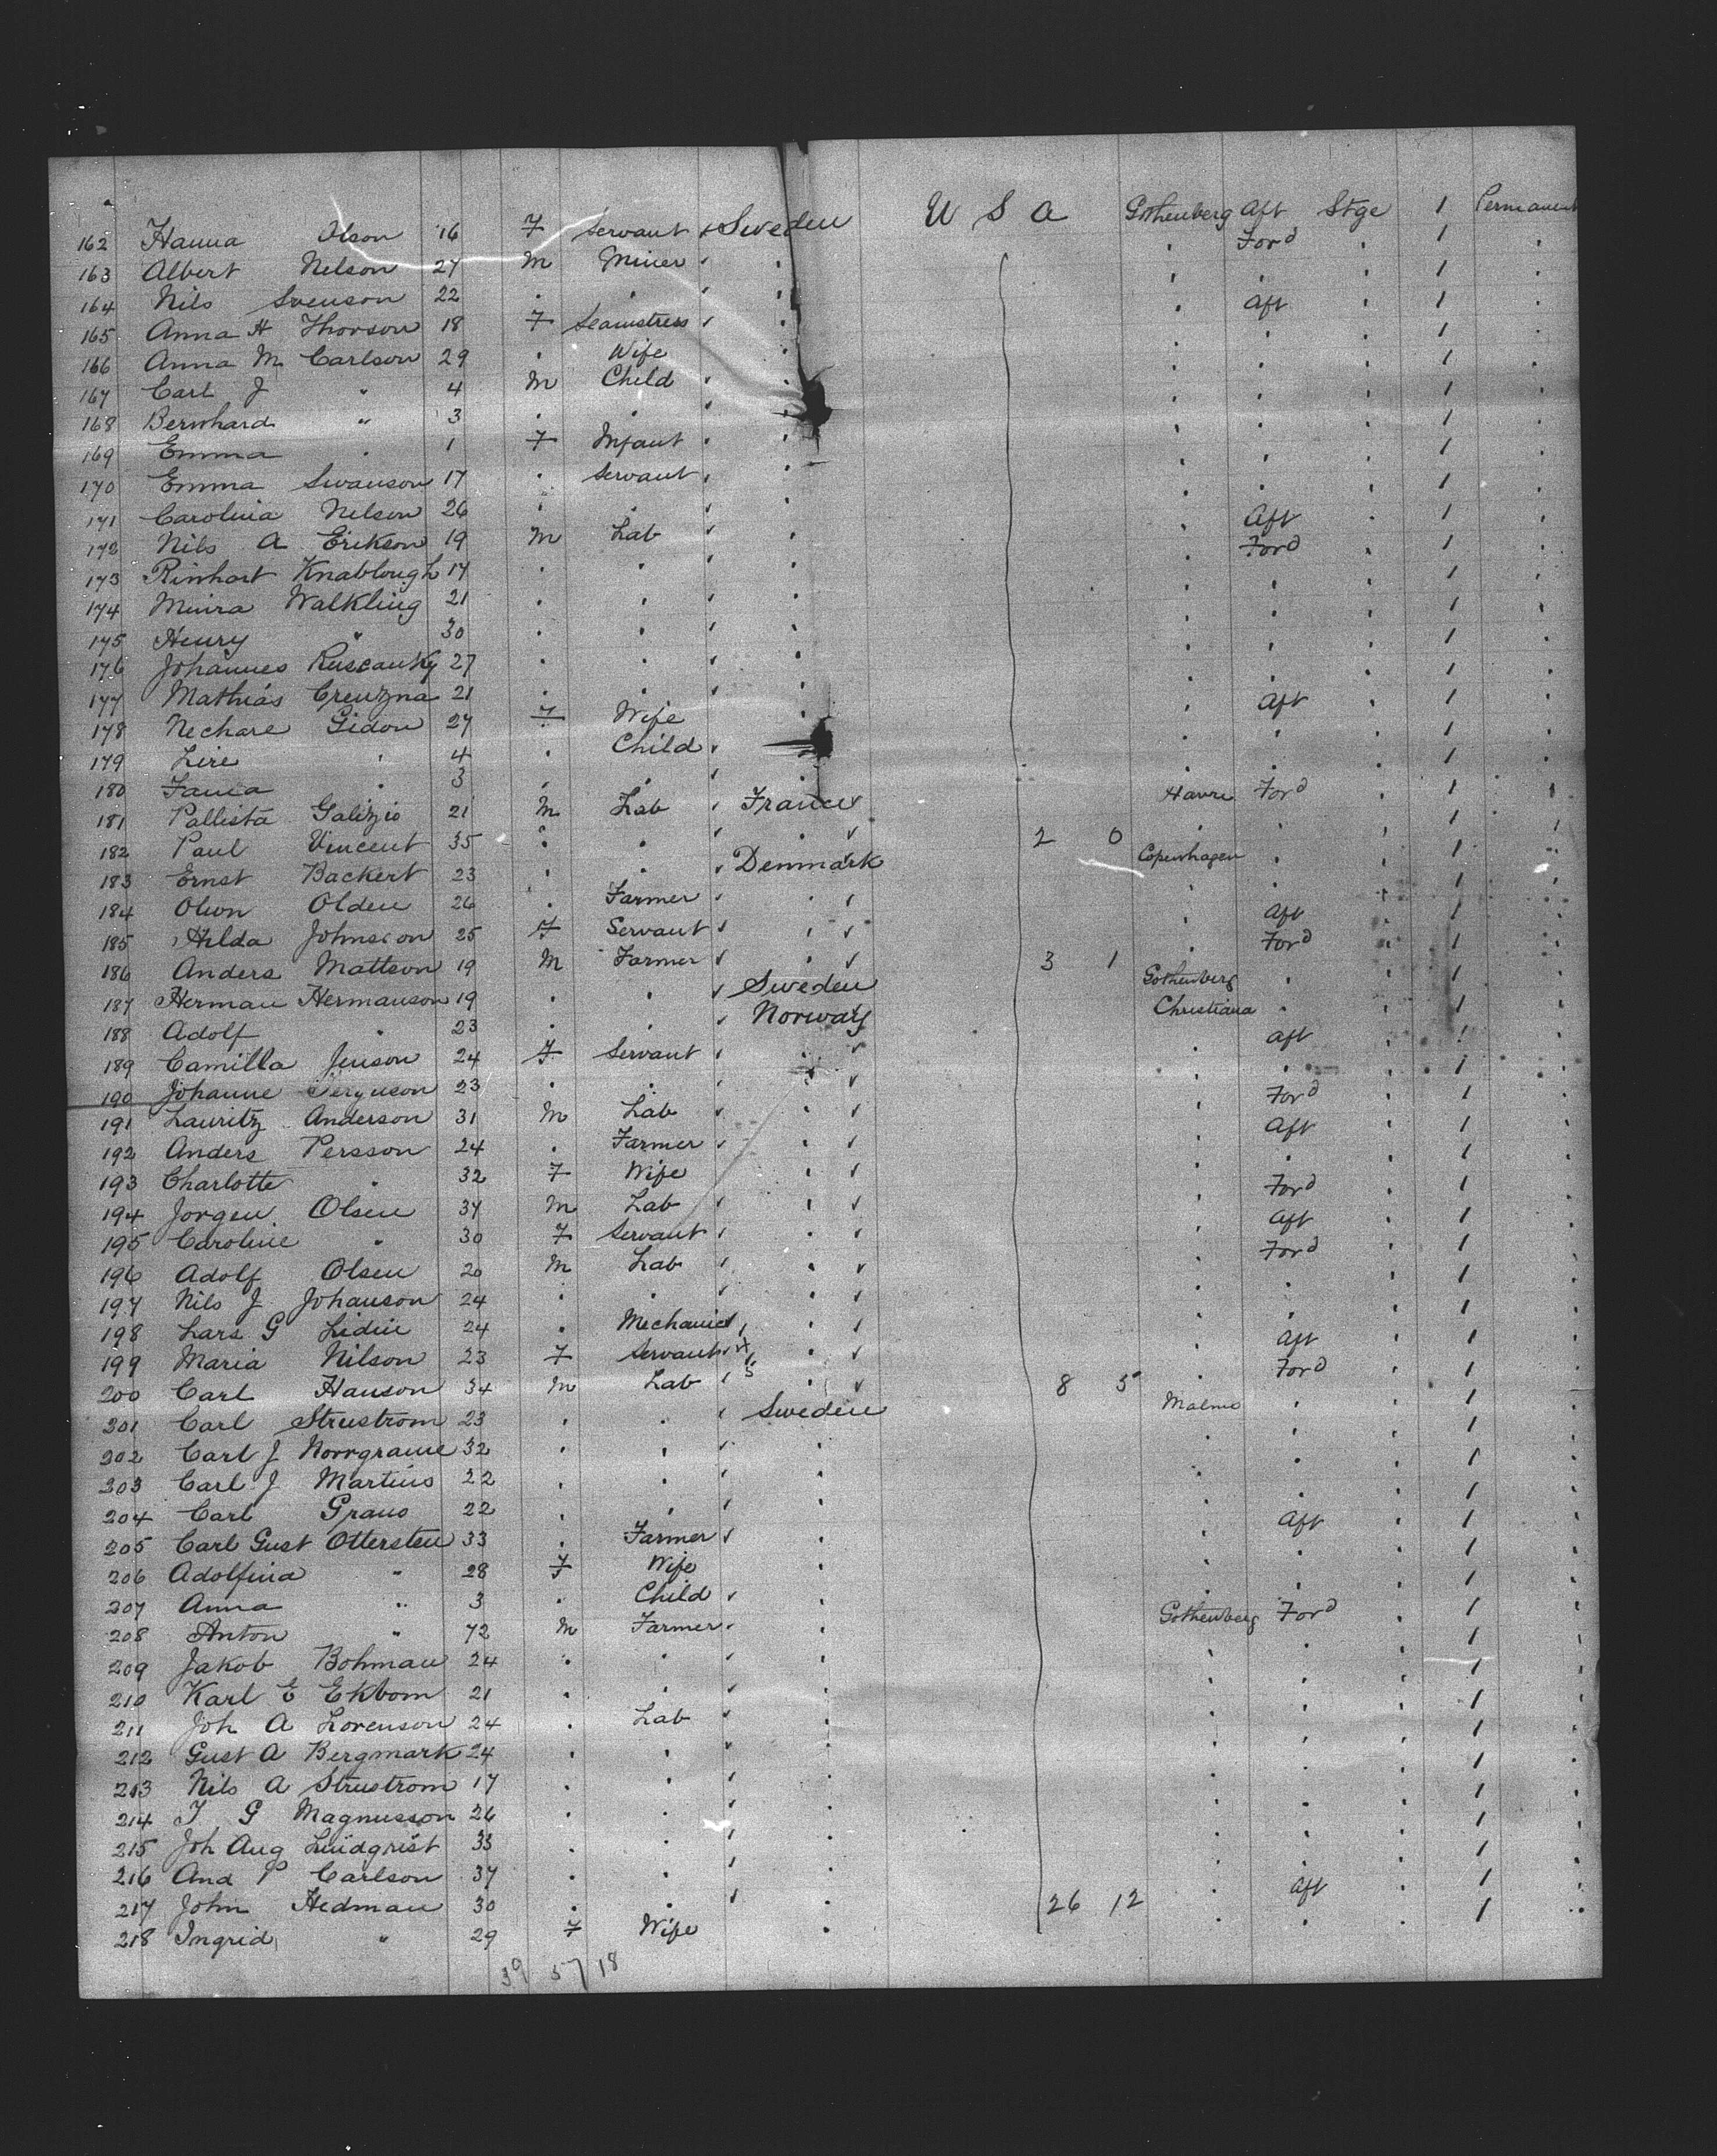 162 Hanna Olson 16 F Servant Sweden U S A Gothenberg Aft Stge 1 Permanent
163 Albert Nelson 27 M Miner " " Ford " 1 "
164 Nils Svenson 22 " " " " " " 1 "
165 Anna H Thorson 18 F Seamstress " " Aft " 1 "
166 Anna M Carlson 29 " Wife " " " " 1 "
167 Carl J " 4 M Child " " " " 1 "
168 Bernhard " 3 " " " " " " 1 "
169 Emma " 1 F Infant " " " " 1 "
170 Emma Swanson 17 " Servant " " " " 1 "
171 Carolina Nelson 26 " " " " " " 1 "
172 Nils A Erikson 19 M Lab " " Aft " 1 "
173 Rinhart Knablough 17 " " " " Ford " 1 "
174 Minra Walkling 21 " " " " " " 1 "
175 Henry " 30 " " " " " " 1 "
176 Johannes Ruscanky 27 " " " " " " 1 "
177 Mathias Creuzna 21 " " " " " " 1 "
178 Nechare Gidon 27 F Wife " " Aft " 1 "
179 Lire " 4 " Child " " " " 1 "
180 Fanca " 3 " " " " " " 1 "
181 Pallista Galizio 21 M Lab France Havre Ford " 1 "
182 Paul Vincent 35 " " " 2 0 " " " 1 "
183 Ernst Backert 23 " " Denmark Copenhagen " " 1 "
184 Olson Olden 26 " Farmer " " " " 1 "
185 Hilda Johnson 25 F Servant " " Aft " 1 "
186 Anders Mattson 19 M Farmer " 3 1 " Ford " 1 "
187 Herman Hermanson 19 " " Sweden Gothenberg " " 1 "
188 Adolf " 23 " " Norway Christiana " " 1 "
189 Camilla Jenson 24 F Servant " " Aft " 1 "
190 Johanne Ferguson 23 " " " " " " 1 "
191 Lauritz Anderson 31 M Lab " " Ford " 1 "
192 Anders Persson 24 " Farmer " " Aft " 1 "
193 Charlotte " 32 F Wife " " " " 1 "
194 Jorgen Olsen 34 M Lab " " Ford " 1 "
195 Caroline " 30 F Servant " " Aft " 1 "
196 Adolf Olsen 20 M Lab " " Ford " 1 "
197 Nils J Johanson 24 " " " " " " 1 "
198 Lars G Lidin 24 " Mechanic " " " " 1 "
199 Maria Nilson 23 F Servant " " Aft " 1 "
200 Carl Hanson 34 M Lab " 8 5 " Ford " 1 "
201 Carl Strustrom 23 " " Sweden Malmo " " 1 "
202 Carl J Norrgrame 32 " " " " " " 1 "
203 Carl J Martins 22 " " " " " " 1 "
204 Carl Graus 22 " " " " " " 1 "
205 Carl Gust Ottersten 33 " Farmer " " Aft " 1 "
206 Adolfina " 28 F Wife " " " " 1 "
207 Anna " 3 " Child " " " " 1 "
208 Anton " 72 M Farmer " Gothenberg Ford " 1 "
209 Jakob Bohman 24 " " " " " " 1 "
210 Karl E Ekbom 21 " " " " " " 1 "
211 Joh A Lorenson 24 " Lab " " " " 1 "
212 Gust A Bergmark 24 " " " " " " 1 "
213 Nils A Strustrom 17 " " " " " " 1 "
214 J G Magnusson 26 " " " " " " 1 "
215 Joh Aug Lindqrist 33 " " " " " " 1 "
216 And P Carlson 37 " " " " " " 1 "
217 John Hedman 30 " " " 26 12 " Aft " 1 "
218 Ingrid " 29 F Wife " " " " 1 "
39 57 18